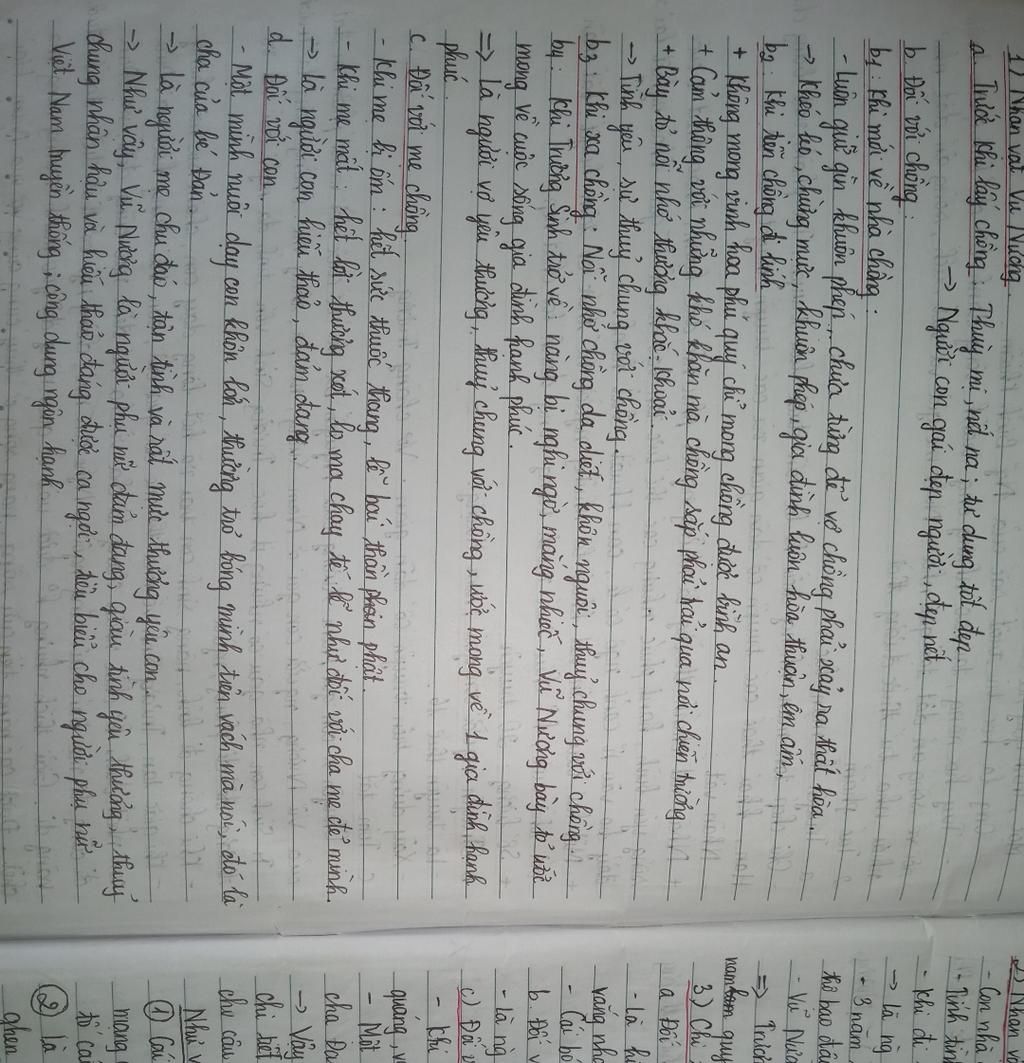 1) Nhân vật Vũ Nương
a. Trước khi lấy chồng: Thuỳ mị, nết na; tư dung tốt đẹp
→ Người con gái đẹp người, đẹp nết
b. Đối với chồng:
b1: Khi mới về nhà chồng:
- Luôn giữ gìn khuôn phép, chưa từng để vợ chồng phải xảy ra thất hòa.
→ Khéo léo, chừng mực, khuôn phép, gia đình luôn hòa thuận, êm ấm.
b2: Khi tiễn chồng đi lính
+ Không mong vinh hoa phú quý chỉ mong chồng được bình an.
+ Cảm thông với những khó khăn mà chồng sắp phải trải qua nơi chiến trường
+ Bày tỏ nỗi nhớ thương khắc khoải.
→ Tình yêu, sự thuỷ chung với chồng.
b3: Khi xa chồng: Nỗi nhớ chồng da diết, khôn nguôi, thuỷ chung với chồng.
b4: Khi Trương Sinh trở về nàng bị nghi ngờ, mắng nhiếc, Vũ Nương bày tỏ ước
mong về cuộc sống gia đình hạnh phúc.
⇒ Là người vợ yêu thương, thuỷ chung với chồng, ước mong về 1 gia đình hạnh
phúc.
c. Đối với mẹ chồng
- Khi mẹ bị ốm: hết sức thuốc thang, lễ bái thần phật
- Khi mẹ mất: hết lời thương xót, lo ma chay tế lễ như đối với cha mẹ đẻ mình.
→ là người con hiếu thảo, đảm đang
d. Đối với con
- Một mình nuôi dạy con khôn lớn, thường trỏ bóng mình trên vách mà nói, đó là
cha của bé Đản.
→ là người mẹ chu đáo, tận tình và rất mực thương yêu con.
→ Như vậy, Vũ Nương là người phụ nữ đảm đang, giàu tình yêu thương, thuỷ
chung nhân hậu và hiếu thảo đáng được ca ngợi, tiêu biểu cho người phụ nữ
Việt Nam truyền thống; công dung ngôn hạnh.
2) Nhân
- Con nhà
- Tính
- Khi đi
→ là
- 3 năm
- Vũ Nư
⇒ Trươ
nam quy
3) Chi
a. Đối
- là
vắng
- Cái
b. Đối v
- là
c) Đối
- Khi
quáng,
- Một
cha Đản
→ Vậy
chi tiết
chu cầu
Như v
① Cái
mong
tố cái
② là
ghen